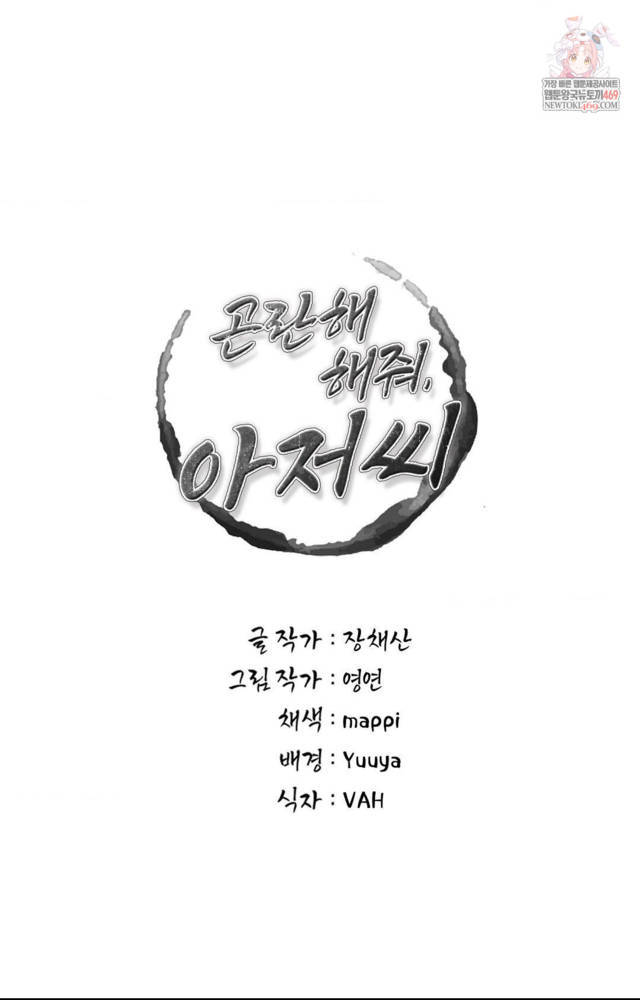 가장 빠른 웹툰제공사이트
웹툰왕국뉴토끼469
NEWTOKI469.COM
곤란해
해줘,
아저씨
글 작가 : 장채산
그림 작가 : 영연
채색 : mappi
배경 : Yuuya
식자 : VAH